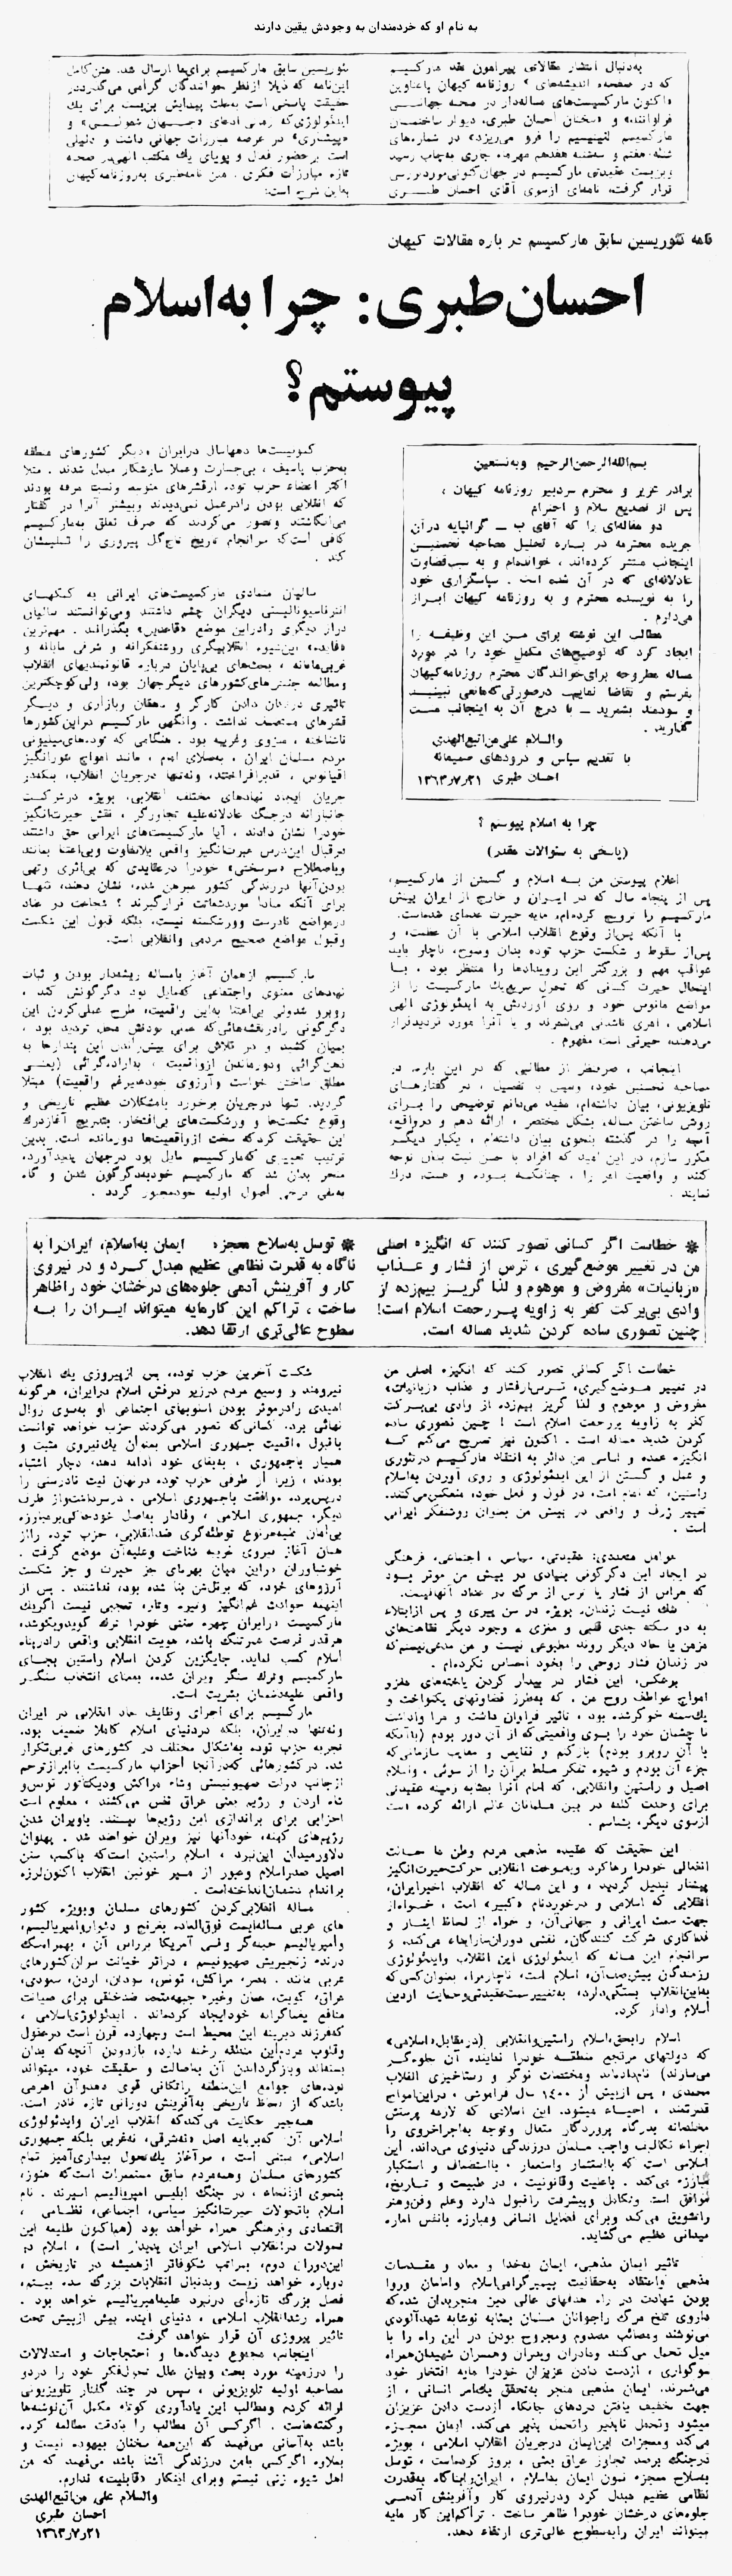 به نام او که خردمندان به وجودش یقین دارند
به‌دنبال انتشار مقالاتی پیرامون نقد مارکسیسم
که در صفحه اندیشه‌های روزنامه کیهان باعناوین
فراوانند» و «سخنان احسان طبری، دیوار ساختمان
مارکسیسم لنینیسم را فرو می‌ریزد» در شماره‌های
قرار گرفت، نامه‌ای ازسوی آقای احسان طبری
تئوریسین سابق مارکسیسم برای‌ما ارسال شد. متن‌کامل
این‌نامه که ذیلا ازنظر خوانندگان گرامی می‌گذرد،در
حقیقت پاسخی است به‌علت پیدایش بن‌بست برای یك
است برحضور فعال و پویای یك مکتب الهی‌در صحنه
تازه مبارزات فکری. متن نامه‌طبری به‌روزنامه‌کیهان
به‌این شرح است:
نامه تئوریسین سابق مارکسیسم در باره مقالات کیهان
احسان‌طبری: چرا به‌اسلام
پیوستم؟
بسم‌الله‌الرحمن‌الرحیم وبه‌نستعین
برادر عزیز و محترم سردبیر روزنامه کیهان ،
پس از تصدیع سلام و احترام
دو مقاله‌ای را که آقای ب ــ گرانپایه درآن
جریده محترمه در بـاره تحلیل مصاحبه نخستین
اینجانب منتشر کرده‌اند ، خوانده‌ام و به سبب‌قضاوت
عادلانه‌ای که در آن شده است . سپاسگزاری خود
را به نویسنده محترم و به روزنامه کیهان ابـراز
می‌دارم .
مطالب این نوشته برای من این وظیفه را
ایجاد کرد که توضیح‌های مکمل خود را در مورد
مساله مطروحه برای‌خوانندگان محترم روزنامه‌کیهان
بفرستم و تقاضا نمایم، درصورتی‌که‌مانعی نبینید
و سودمند بشمرید ــ با درج آن به اینجانب منت
گذارید .
والسلام علی‌من‌اتبع‌الهدی
با تقدیم سپاس و درودهای صمیمانه
احسان طبری ۱۳۶۳٫۷٫۲۱
چرا به اسلام پیوستم ؟
(پاسخی به سئوالات مقدر)
اعلام پیوستن من بـه اسلام و گسستن از مارکسیسم،
پس از پنجاه سال که در ایـران و خارج از ایران بینش
مارکسیسم را ترویج کرده‌ام، مایه حیرت عده‌ای شده‌است.
با آنکه پس‌از وقوع انقلاب اسلامی با آن عظمت، و
پس‌از سقوط و شکست حزب توده بدان وضوح، ناچار باید
عواقب مهم و بزرگتر این رویدادها را منتظر بود ، بـا
اینحال حیرت کسانی که تحول سریع‌یك مارکسیست را از
مواضع مانوس خود و روی آوردنش به ایدئولوژی الهی
اسلامی ، امری ناشدنی می‌شمرند و یا آنرا مورد تردیدقرار
می‌دهند، حیرتی است مفهوم .
اینجانب ، صرفنظر از مطالبی که در این باره، در
مصاحبه نخستین خود، وسپس با تفصیل ، در گفتارهـای
تلویزیونی، بیان داشته‌ام، مفید می‌دانم توضیحی را بـرای
روشن ساختن مساله، بشکل مختصر ، ارائه دهم و درواقع،
آنچه را در گذشته بنحوی بیان داشته‌ام ، یکبار دیگـر
مکرر سازم، در این امید که افراد با حسن نیت بدان توجه
کنند و واقعیت امر را ، چنانکـه بـوده و هست، درك
نمایند .
کمونیست‌ها دهها‌سال درایران ودیگر کشورهای منطقه
به‌حزب پاسیف ، بی‌جسارت وعملا سازشکار مبدل شدند . مثلا
اکثر اعضاء حزب توده ازقشرهای متوسط ونسبتا مرفه بودند
که انقلابی بودن رادرعمل نمی‌دیدند وبیشتر آنرا در گفتار
می‌انگاشتند وتصور می‌کردند که صرف تعلق به‌مارکسیسم
کافی است‌که سرانجام تاریخ تاج‌گل پیروزی را تسلیمشان
کند .
سالیان متمادی مارکسیست‌های ایرانی به کمکهای
انترناسیونالیستی دیگران چشم داشتند ومی‌توانستند سالیان
دراز دیگری رادراین موضع «قاعدین» بگذرانند . مهم‌ترین
«فایده» این‌شیوه انقلابیگری روشنفکرانه و شرقی مآبانه و
غربی‌مآبانه ، بحث‌های بی‌پایان درباره قانونمندیهای انقلاب
ومطالعه جنبش‌های‌کشورهای دیگرجهان بود، ولی‌کوچکترین
تاثیری درتکان دادن کارگر و دهقان وبازاری و دیـگر
قشرهای مستضعف نداشت . وانگهی مارکسیسم دراین‌کشورها
ناشناخته ، منزوی وغریبه بود . هنگامی که توده‌های‌میلیونی
مردم مسلمان ایران ، به‌صلای امام ، مانند امواج شورانگیز
اقیانوس ، قدبرافراختند، ونه‌تنها درجریان انقلاب، بلکه‌در
جریان ایجاد نهادهای مختلف انقلابی، بویژه درشرکت
جانبازانه درجنگ عادلانه‌علیه تجاوزگر ، نقش حیرت‌انگیز
خودرا نشان دادند ، آیا مارکسیست‌های ایرانی حق داشتند
درقبال این‌درس عبرت‌انگیز واقعی بلاتفاوت وبی‌اعتنا بمانند
وباصطلاح «سرسختی» خودرا درعقایدی که بی‌اثری وتهی
بودن‌آنها درزندگی کشور مبرهن شده، نشان دهند، تنهـا
برای آنکه مبادا موردشماتت قرارگیرند ؟ شجاعت در عناد
درمواضع نادرست وورشکسته نیست، بلکه قبول این شکست
وقبول مواضع صحیح مردمی وانقلابی است.
مارکسیسم ازهمان آغاز بامساله ریشه‌دار بودن و ثبات
نهادهای معنوی واجتماعی که‌مایل بود دگرگونش کند ،
روبرو شدولی بی‌اعتنا به‌این واقعیت، طرح عملی‌کردن این
دگرگونی رادرنقشه‌هائی‌که علمی بودنش محل تردید بود ،
بمیان کشید و در تلاش برای پیش‌راندن این پندارها به
ذهن‌گرائی ودورماندن ازواقعیت ، به‌اراده‌گرائی (یعنـی
مطلق ساختن خواست وآرزوی خودعلیرغم واقعیت) مبتلا
گردید. تنها درجریان برخورد بامشکلات عظیم تاریخی و
وقوع شکست‌ها و ورشکست‌های بی‌افتخار، بتدریج آغازدرك
این حقیقت کردکه سخت ازواقعیت‌ها دورمانده است. بدین
ترتیب تغییری که‌مارکسیسم مایل بود درجهان پدیدآورد،
منجر بدان شد که مارکسیسم خودبه‌دگرگون شدن و گاه
به‌نفی برخی اصول اولیه خودمجبور گردد .
✽ خطاست اگر کسانی تصور کنند که انگیزه اصلی
من در تغییر موضع‌گیری ، ترس از فشار و عـذاب
«زبانیات» مفروض و موهوم و لذا گریـز بیم‌زده از
وادی بی‌برکت کفر به زاویه پـررحمت اسلام است!
چنین تصوری ساده کردن شدید مساله است.
✽ توسل به‌سلاح معجزه ایمان به‌اسلام، ایران‌را به
ناگاه به قدرت نظامی عظیم مبدل کـرد و در نیروی
کار و آفرینش آدمی جلوه‌های درخشان خود راظاهر
ساخت ، تراکم این کارمایه میتواند ایـران را بـه
سطوح عالی‌تری ارتقا دهد.
خطاست اگر کسانی تصور کنند که انگیزه اصلی من
در تغییر مـوضع‌گیری، تـرس‌ازفشار و عذاب «زبانیات»
مفروض و موهوم و لذا گریز بیم‌زده از وادی بی‌بـرکت
کفر به زاویه پررحمت اسلام است ! چنین تصوری ساده
کردن شدید مساله است . اکنون نیز تصریح می‌کنم کـه
انگیزه عمده و اساسی من دائر به انتقاد مارکسیسم درتئوری
و عمل و گسستن از این ایدئولوژی و روی آوردن به‌اسلام
راستین، که امام امت، در قول و فعل خود، منعکس‌می‌کنند،
تغییر ژرف و واقعی در بینش من بعنوان روشنفکر ایرانی
است .
عوامل متعددی: عقیدتی، سیاسی ، اجتماعی، فرهنگی
در ایجاد این دگرگونی بنیادی در بینش من موثر بـود
که هراس از فشار یا ترس از مرگ در عداد آنهانیست.
شك نیست زندان، بویژه در سن پیری و پس ازابتلاء
به دو سکته جدی قلبی و مغزی ، وجود دیگر نقاهت‌های
مزمن یا حاد دیگر روند مطبوعی نیست و من مدعی‌نیستم‌که
در زندان فشار روحی را بخود احساس نکرده‌ام .
بوعکس، این فشار در بیدار کردن یاخته‌های مغزو
امواج عواطف روح من ، که به‌طرز قضاوتهای یکنواخت و
یك‌سمته خوگرشده بود ، تاثیر فراوان داشت و مرا واداشت
تا چشمان خود را بسوی واقعیتی‌که از آن دور بودم (باآنکه
با آن روبرو بودم) بازکنم و نقایص و معایب سازمانی‌که
جزء آن بودم و شیوه تفکر مسلط برآن را از سوئی ، واسلام
اصیل و راستین وانقلابی، که امام آنرا بمثابه زمینه عقیدتی
برای وحدت کلمه در بین مسلمانان عالم ارائه کرده است
ازسوی دیگر، بشناسم .
این حقیقت که عقیده مذهبی مردم وطن ما حـالت
انفعالی خودرا رهاکرد وبصورت انقلابی حرکت‌حیرت‌انگیز
پیشتاز تبدیل گردید ، و این مساله که انقلاب اخیرایران،
انقلابی که اسلامی و درخوردنام «کبیر» است ، خـواه‌از
جهت سمت ایرانی و جهانی‌آن، و خواه از لحاظ ایثار و
فداکاری شرکت کنندگان، نقشی دوران‌سازایفاء می‌کند، و
سرانجام این مساله که ایدئولوژی این انقلاب وایدئولوژی
رزمندگان پیش‌صف‌آن، اسلام است، ناچارمرا، بعنوان‌کسی‌که
به‌این‌انقلاب بستگی‌دارد، به‌تغییرسمت‌عقیدتی‌وحمایت ازدین
اسلام وادار کرد.
اسلام را‌بحق،«اسلام راستین‌وانقلابی (درمقابل«اسلامی»
که دولتهای مرتجع منطقـه خودرا نماینده آن جلوه‌گـر
می‌سازند) نام‌داده‌اند ومختصات نوگر و رستاخیزی انقلاب
محمدی ، پس ازبیش از ۱۴۰۰ سال فراموشی ، دراین‌امواج
قدرتمند ، احیـاء میشود. این اسلامی که لازمه پرستش
مخلصانه بدرگاه پروردگار متعال وتوجه به‌اجراخروی را
اجراء تکالیف واجب مسلمان درزندگی دنیاوی می‌داند. این
اسلامی است که بااستثمار واستعمار ، بااستضعاف و استکبار
مبارزه می‌کند . باعلیت وقانونیت ، در طبیعت و تـاریخ،
موافق است وتکامل وپیشرفت راقبول دارد وعلم وفن‌وهنر
راتشویق می‌کند وبرای فضایل انسانی ومبارزه بانفس اماره
میدانی عظیم می‌گشاید.
تاثیر ایمان مذهبی، ایمان به‌خدا و معاد و مقـدسات
مذهبی واعتقاد به‌حقانیت پیمبرگرامی‌اسلام وامامان وروا
بودن شهادت در راه هدفهای عالی دین منجربدان شده‌که
داروی تلخ مرگ راجوانان مسلمان بمثابه نوشابه شهدآلودی
می‌نوشند ومصائب مصدوم ومجروح بودن در این راه را با
میل تحمل می‌کنند ومادران وپدران وهمسران شهیدان‌همراه
سوگواری ، ازدست دادن عزیزان خودرا مایه افتخار خود
می‌شمرند. ایمان مذهبی منجر به‌تحقق یك‌امر انسانی ، از
جهت تخفیف یافتن دردهای جانکاه ازدست دادن عزیزان
میشود وتحمل ناپذیر راتحمل پذیر می‌کند. ایمان معجـزه
می‌کند ومعجزات این‌ایمان درجریان انقلاب اسلامی ، بویژه
درجنگ برضد تجاوز عراق بعثی ، بروز کرده‌است ، توسل
به‌سلاح معجزه نمون ایمان به‌اسلام ، ایران‌رابناگاه به‌قدرت
نظامی عظیم مبدل کرد ودرنیروی کار وآفرینش آدمـی
جلوه‌های درخشان خودرا ظاهر ساخت . تراکم‌این کار مایه
میتواند ایران رابه‌سطوح عالی‌تری ارتقاء دهد.
شکست آخرین حزب توده، پس ازپیروزی یك انقلاب
نیرومند و وسیع مردم درزیر درفش اسلام درایران، هرگونه
امیدی رادرموثر بودن اسلوبهای اجتماعی او به‌سوی زوال
نهائی برد. کسانی‌که تصور می‌کردند حزب خواهد توانست
باقبول واقعیت جمهوری اسلامی بعنوان یك‌نیروی مثبت و
همیار باجمهوری ، به‌بقای خود ادامه دهد، دچار اشتباه
بودند ، زیرا از طرفی حزب توده درنهان نیت نادرستی را
درپس‌پرده موافقت باجمهوری اسلامی ، درسرداشت‌واز طرف
دیگر، جمهوری اسلامی ، وفادار به‌اصل خودحاکی‌برمبارزه
بی‌امان علیه‌هرنوع توطئه‌گری ضدانقلابی، حزب توده رااز
همان آغاز نیروی غریبه شناخت وعلیه‌آن موضع گرفت .
خوشباوران دراین میان بهره‌ای جز حیرت و جز شکست
آرزوهای خود، که برتل‌شن بنا شده بود، نداشتند . پس از
اینهمه حوادث غم‌انگیز وتیره وتار، تعجبی نیست اگریك
مارکسیست درایران چهره سنتی خودرا ترك گویدوبکوشد،
هرقدر فرصت عمرتنگ باشد، هویت انقلابی واقعی رادرپناه
اسلام کسب نماید. جایگزین کردن اسلام راستین بجـای
مارکسیسم وترك سنگر ویران شده، بمعنای انتخاب سنگـر
واقعی علیه‌دشمنان بشریت است.
مارکسیسم برای اجرای وظایف حاد انقلابی در ایران
ونه‌تنها در ایران، بلکه دردنیای اسلام کاملا ضعیف بود.
تجربه حزب توده به‌اشکال مختلف در کشورهای عربی‌تکرار
شد. درکشورهائی که‌درآنجا احزاب مارکسیست باابرازترحم
ازجانب دولت صهیونیستی وشاه مراکش ودیکتاتور تونس‌و
شاه اردن و رژیم بعثی عراق تنفس می‌کشند ، معلوم است
احزابی برای براندازی این رژیم‌ها نیستند. باویران شدن
رژیم‌های کهنه، خودآنها نیز ویران خواهند شد . پهلوان
دلاورمیدان این‌نبرد ، اسلام راستین است‌که باکسب سنن
اصیل صدراسلام وعبور از مسیر خونین انقلاب اکنون‌لرزه
براندام دشمنان‌انداخته‌است .
مساله انقلابی‌کردن کشورهای مسلمان وبویژه کشور
های عربی مساله‌ایست فوق‌العاده بغرنج و دشواروامپریالیسم،
درنده زنجیریش صهیونیسم ، دراثر خیانت سران‌کشورهای
عربی مانند . مصر، مراکش، تونس، سودان، اردن، سعودی،
عراق، کویت، عمان وغیره جبهه‌متحد ضدخلقی برای صیانت
منافع یغماگرانه خودایجاد کرده‌اند . ایدئولوژی‌اسلامی ،
که‌فرزند دیرینه این محیط است وچهارده قرن است درعقول
وقلوب مردم‌این منطقه رخنه دارد، بازدودن آنچه‌که بدان
بسته‌اند وبازگرداندن آن به‌اصالت و حقیقت خود، میتواند
توده‌های جوامع این‌منطقه راتکانی قوی دهدوآن اهرمی
باشدکه از لحاظ تاریخی به‌آفرینش دورانی تازه قادر است.
همه‌چیز حکایت می‌کندکه انقلاب ایران وایدئولوژی
اسلامی آن که‌برپایه اصل «نه‌شرقی، نه‌غربی بلکه جمهوری
اسلامی» مبتنی است ، سرآغاز یك‌تحول بیداری‌آمیز تمام
کشورهای مسلمان وهمه‌مردم سابق مستعمرات است‌که هنوز،
بنحوی ازانحاء ، در چنگ ابلیس امپریالیسم اسیرند . نام
اسلام باتحولات حیرت‌انگیز سیاسی، اجتماعی، نظـامی ،
اقتصادی وفرهنگی همراه خواهد بود (هم‌اکنون طلیعه این
تحولات درانقلاب اسلامی ایران پدیدار است) ، اسلام در
این‌دوران دوم، بمراتب شکوفاتر ازهمیشه در تاریخش ،
دوباره خواهد زیست وبدنبال انقلابات بزرگ سده بیستم،
فصل بزرگ تازه‌ای درنبرد علیه‌امپریالیسم خواهد بود .
همراه رشدانقلاب اسلامی ، دنیای آینده بیش ازپیش تحت
تاثیر پیروزی آن قرار خواهدگرفت.
اینجانب، مجموع دیدگاه‌ها و احتجاجات و استدلالات
را درزمینه مورد بحث وبیان علل تحول‌فکر خود را دردو
مصاحبه اولیه تلویزیونی ، سپس در چند گفتار تلویزیونی
ارائه کردم ومطالب این یادآوری کوتاه مکمل آن‌نوشته‌ها
وگفته‌هاست . اگرکسی آن مطالب را بادقت مطالعه کرده
باشد به‌آسانی می‌فهمد که این‌همه سخنان بیهوده نیست و
بعلاوه اگرکسی بامن درزندگی آشنا باشد می‌فهمد که من
اهل شیوه زنی نیستم وبرای اینکار «قابلیت» ندارم.
والسلام علی من‌اتبع‌الهدی
احسان طبری
۱۳۶۳٫۷٫۲۱